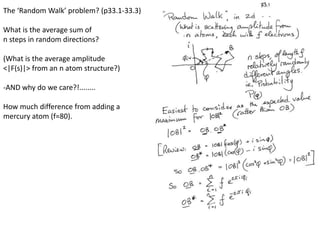 The 'Random Walk' problem? (p33.1-33.3)
What is the average sum of
n steps in random directions?
(What is the average amplitude
<|F(s)|> from an n atom structure?)
-AND why do we care?!........
How much difference from adding a
mercury atom (f=80).
33.1
"Random Walk", in 2d ...
"What is scattering amplitude from
n atoms, each with f electrons?
B
n steps of length f
relatively randomly
different angles.
ie. Probability
P(φ)
i
O
φ
Easiest to consider as the expected value
maximum for |OB|² (rather than OB)
|OB|² = OB.OB*
[Review: OB = |OB|(cosφ + i sinφ)
OB* = |OB|(cosφ - i sinφ)
So OB.OB* = |OB|²(cos²φ + sin²φ) = |OB|²]
So OB = Σ f e^2πiφi
OB* = Σ f e^-2πiφi